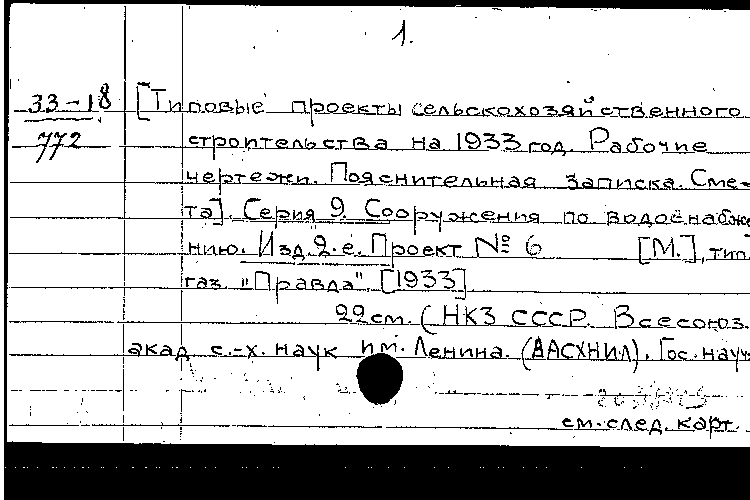 1.
33-18 [Типовые проекты сельскохозяйственного
772 строительства на 1933 год. Рабочие
чертежи. Пояснительная записка. Сме-
та]. Серия 9. Сооружения по водоснабже
нию. Изд. 2-е. Проект № 6 [М.], тип.
газ. "Правда", [1933].
22 см. (НКЗ СССР. Всесоюз.
акад. с.-х. наук им. Ленина. (ВАСХНИЛ). Гос. науч.
см. след. карт.